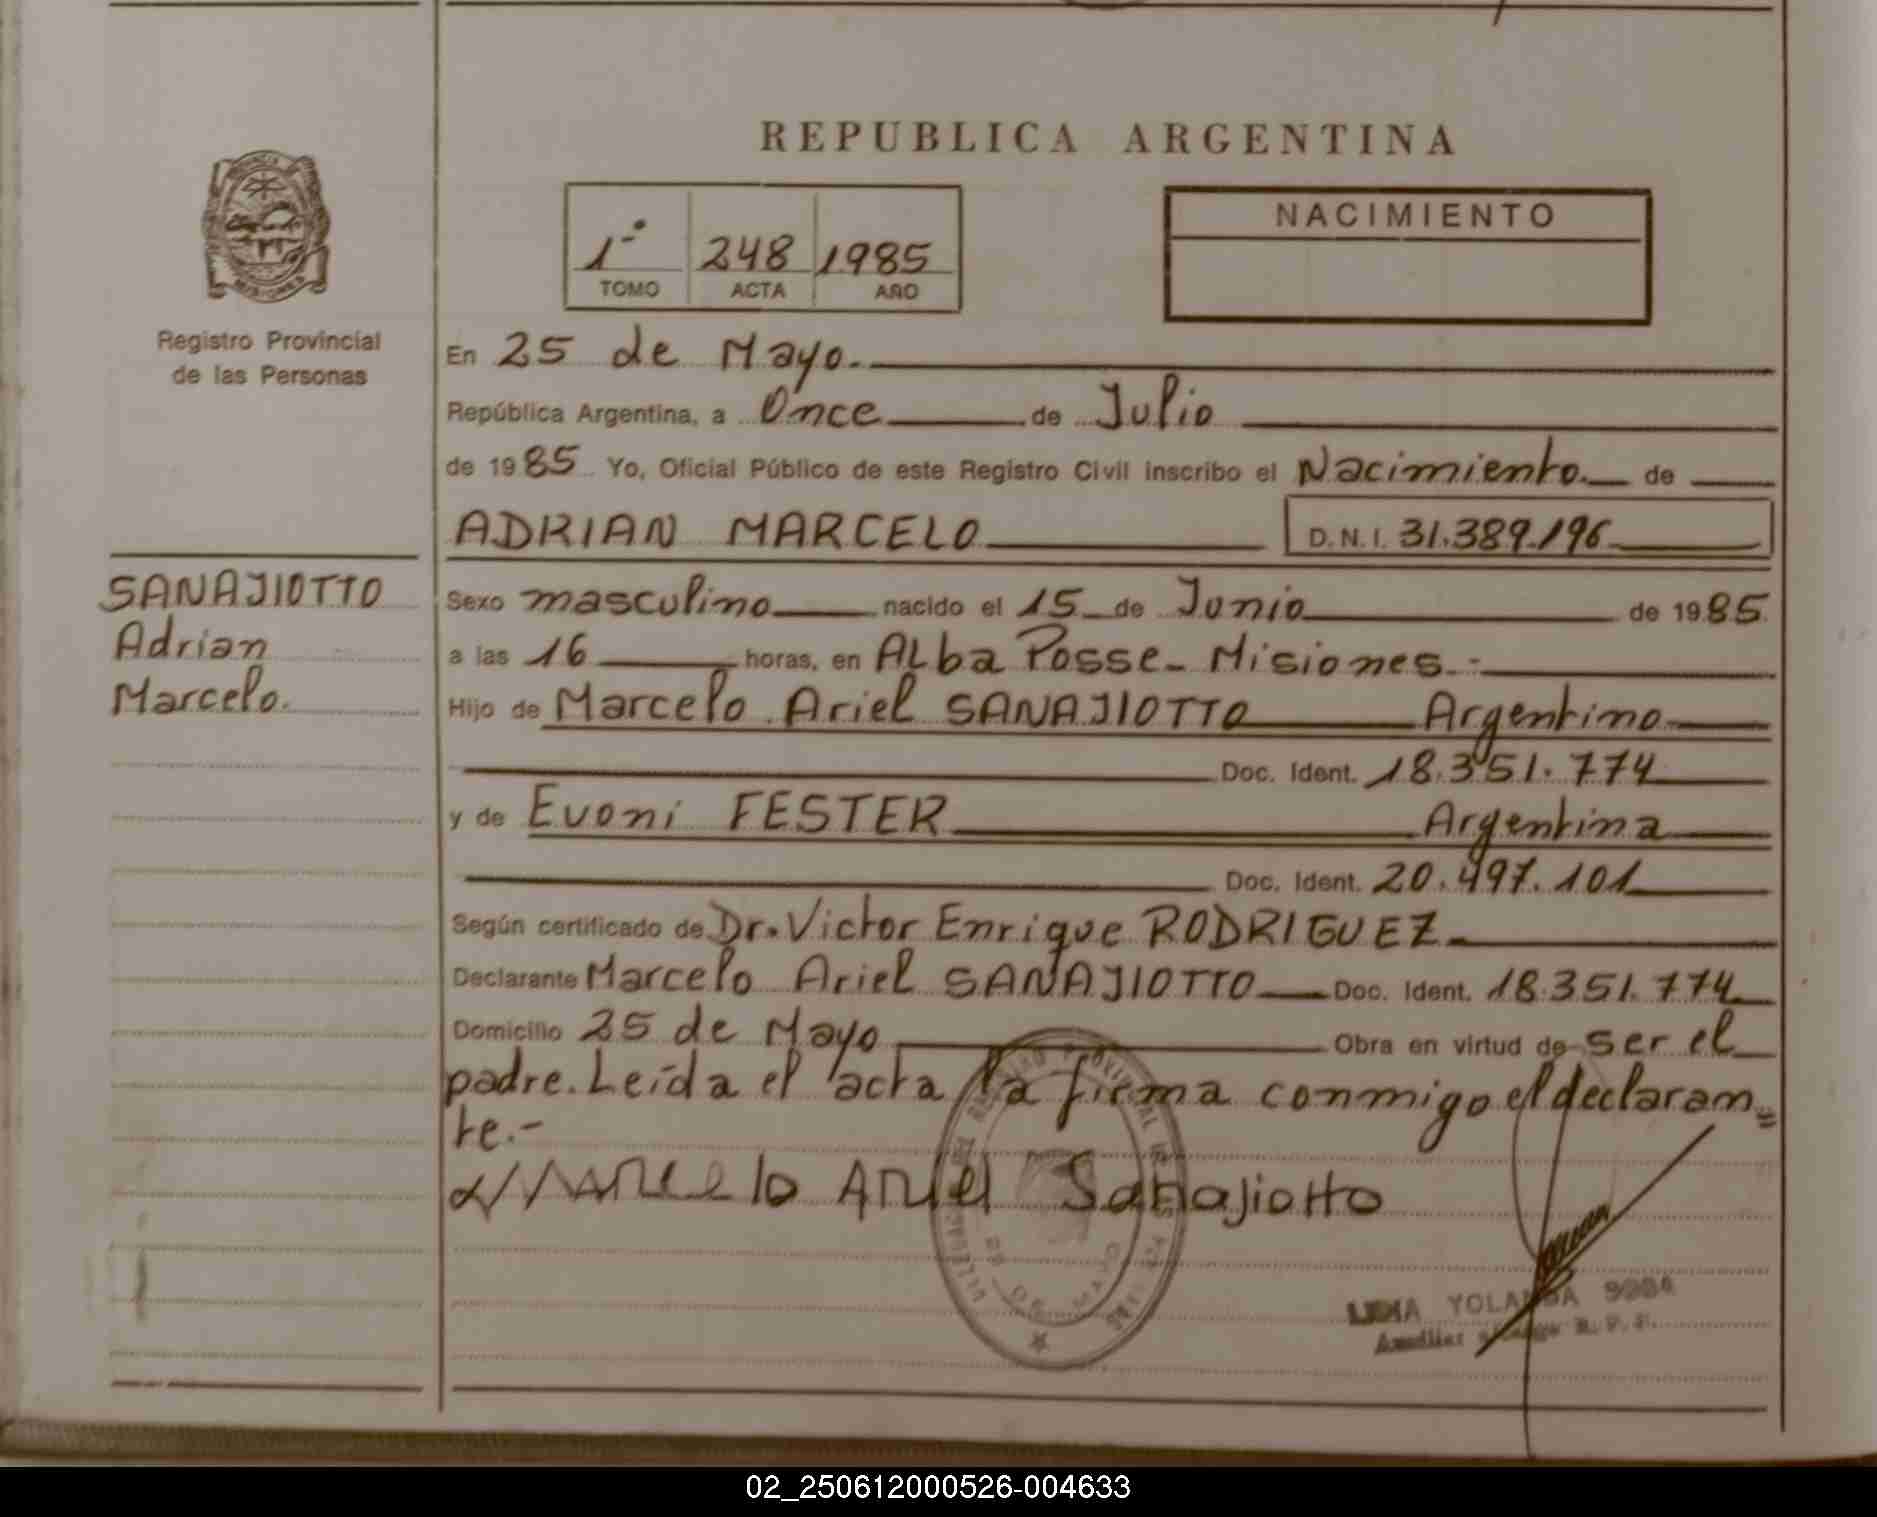 REPUBLICA ARGENTINA
1º 248 1985
TOMO ACTA AÑO
NACIMIENTO
Registro Provincial
de las Personas
En 25 de Mayo.
República Argentina, a Once de Julio
de 1985 Yo, Oficial Público de este Registro Civil inscribo el Nacimiento. de
ADRIAN MARCELO D.N.I. 31.389.196
SANAJIOTTO
Adrian
Marcelo.
Sexo masculino nacido el 15 de Junio de 1985
a las 16 horas, en Alba Posse - Misiones.-
Hijo de Marcelo Ariel SANAJIOTTO Argentino
Doc. Ident. 18.351.774
y de Evoni FESTER Argentina
Doc. Ident. 20.497.101
Según certificado de Dr. Victor Enrique RODRIGUEZ
Declarante Marcelo Ariel SANAJIOTTO Doc. Ident. 18.351.774
Domicilio 25 de Mayo Obra en virtud de ser el
padre. Leída el acta la firma conmigo el declaran=
te.-
Marcelo Ariel Sanajiotto
25 DE MAYO
YOLANDA
02_250612000526-004633